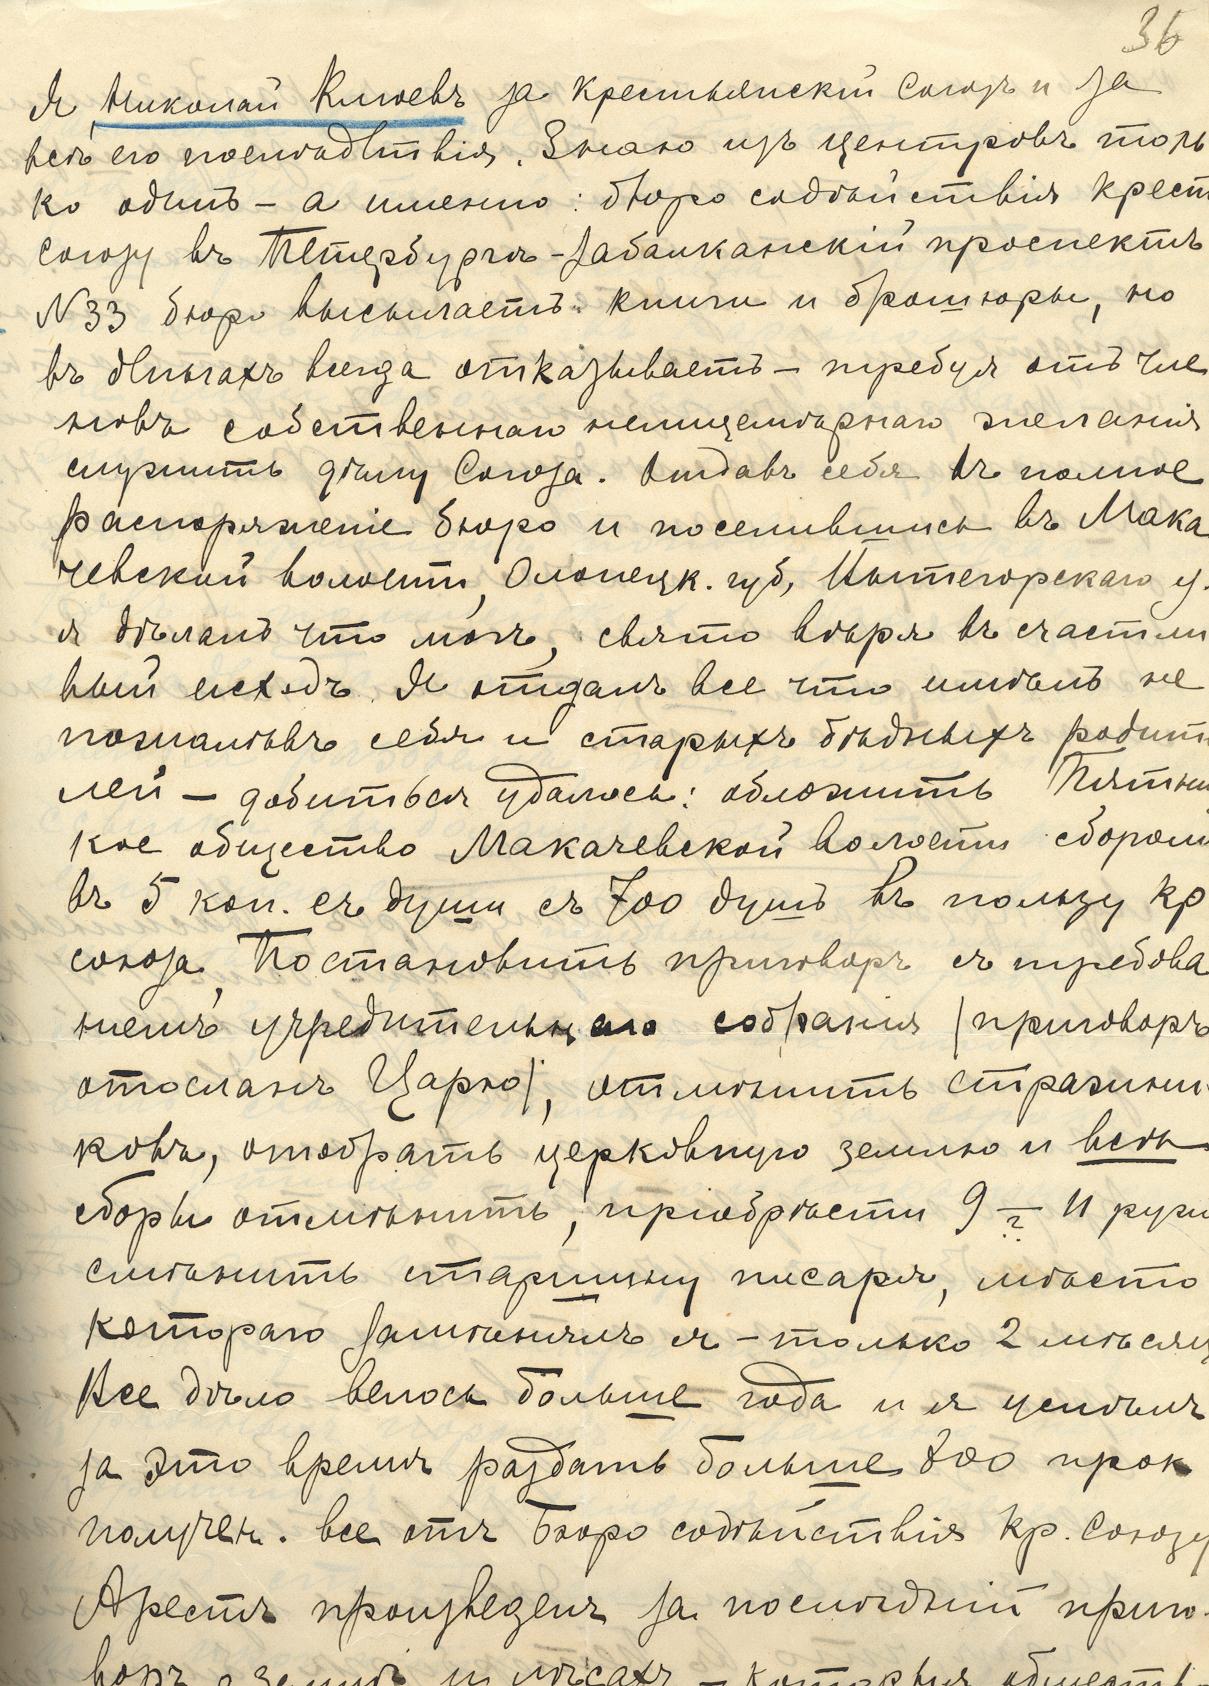 36
Я, Николай Клюевъ за крестьянскiй союзъ и за
всѣ его послѣдствiя. Знаю изъ центровъ толь
ко одинъ – а именно: бюро содѣйствiя крест
союзу въ Петербургѣ – Забалканскiй проспектъ
N 33 бюро высылаетъ книги и брошюры, но
въ деньгахъ всегда отказываетъ – требуя отъ чле
новъ собственнаго нелицемѣрнаго желанiя
служить дѣлу Союза. Отдавъ себя въ полное
распоряженiе бюро и поселившись въ Мака
чевской волости, Олонецк. губ, Вытегорскаго у.
я дѣлалъ что могъ, свято вѣря въ счастли
вый исходъ. Я отдалъ все что имѣлъ не
пожалѣвъ себя и старыхъ бѣдныхъ родит
лей – добиться удалось: обложить Пятниц
кое общество Макачевской волости сборомъ
въ 5 коп. съ души съ 700 душъ въ пользу кр
союза, Постановить приговоръ съ требова
нiемъ учредительнаго собранiя /приговоръ
отосланъ Царю/, отмѣнить стражни
ковъ, отобрать церковную землю и всѣ
сборы отмѣнить, прiобрѣсти 9 – 11 руж
смѣнить старшину писаря, мѣсто
котораго замѣнялъ я – только 2 мѣсяц
Все дѣло велось больше года и я успѣлъ
за это время раздать больше 800 прок
получен. все отъ Бюро содѣйствiя кр. союзу
Арестъ произведенъ за послѣднiй приго-
воръ о землѣ и лѣсахъ – которыя обществ